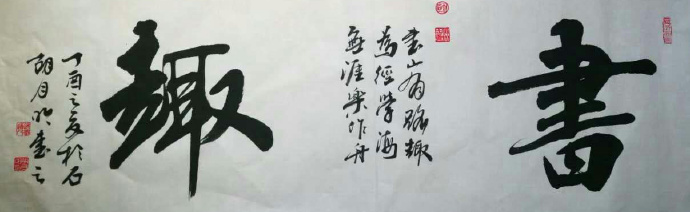 書
書山有路趣
為徑學海
無涯樂作舟
趣
丁酉之夏於石
胡月明書之